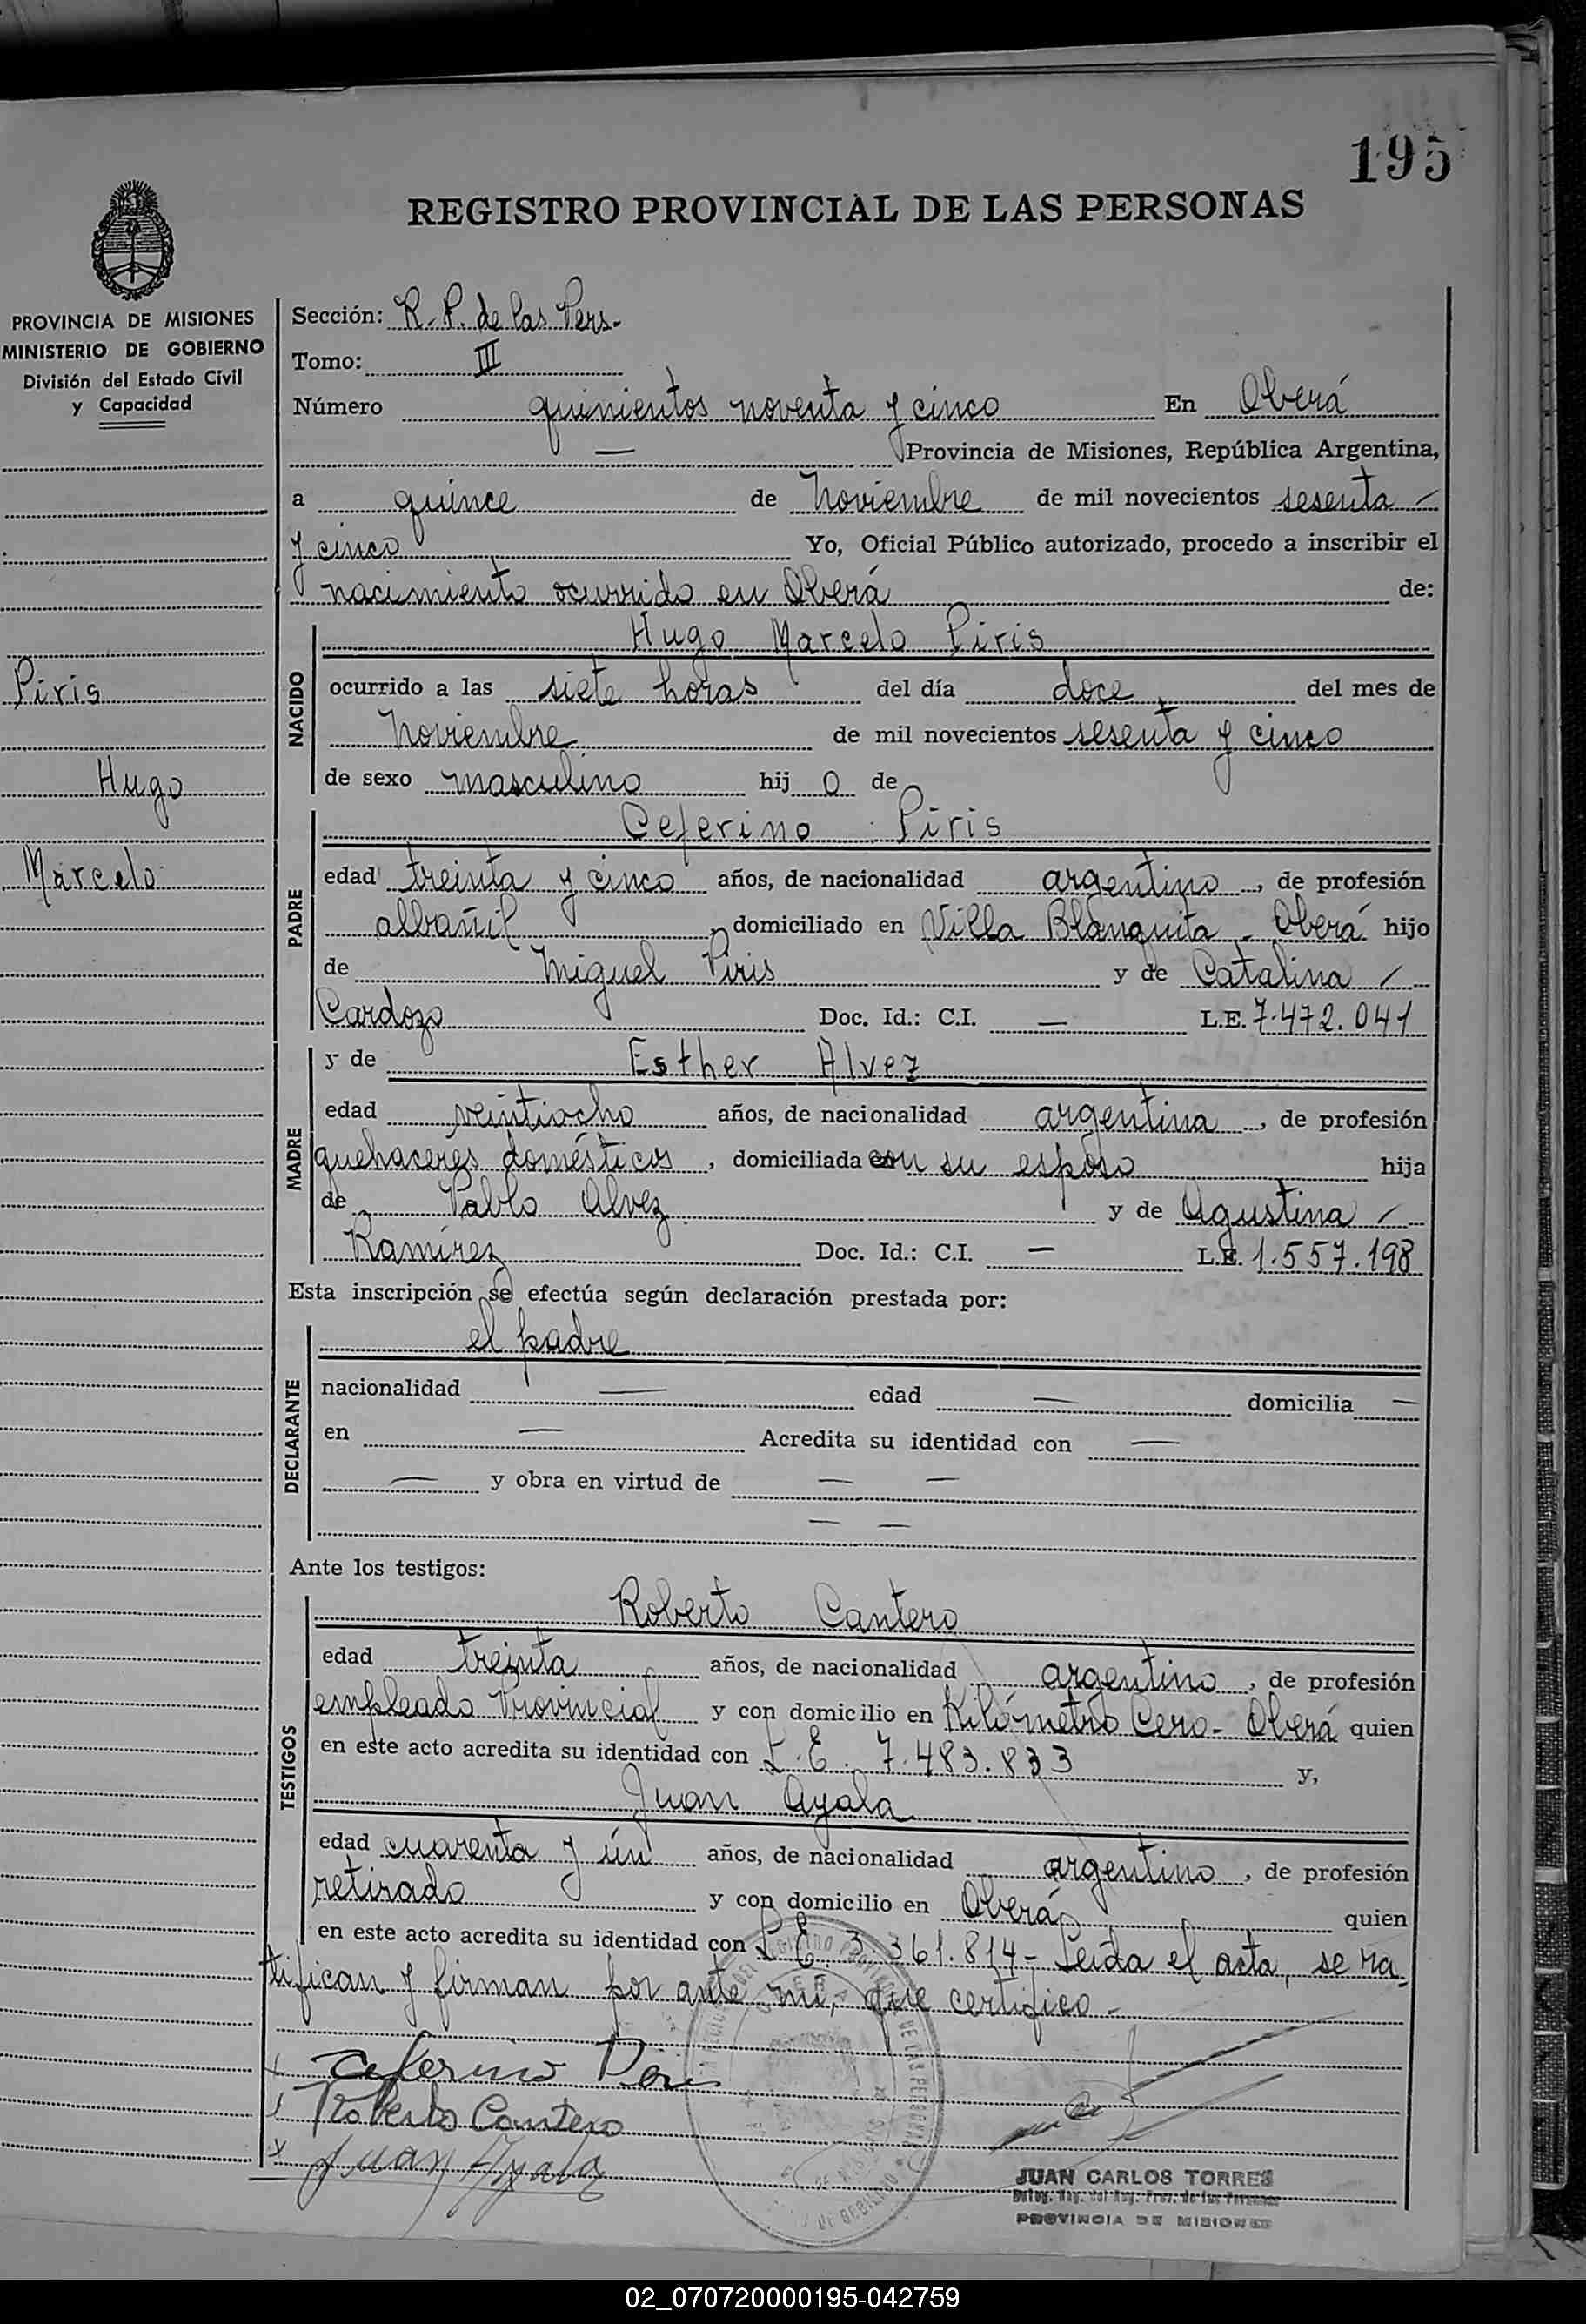 195
REGISTRO PROVINCIAL DE LAS PERSONAS
PROVINCIA DE MISIONES
MINISTERIO DE GOBIERNO
División del Estado Civil
y Capacidad
Piris
Hugo
Marcelo
Sección: R. P. de las Pers.
Tomo: III
Número quinientos noventa y cinco En Oberá
— Provincia de Misiones, República Argentina,
a quince de Noviembre de mil novecientos sesenta —
y cinco Yo, Oficial Público autorizado, procedo a inscribir el
nacimiento ocurrido en Oberá de:
NACIDO
Hugo Marcelo Piris
ocurrido a las siete horas del día doce del mes de
Noviembre de mil novecientos sesenta y cinco
de sexo masculino hij o de
PADRE
Ceferino Piris
edad treinta y cinco años, de nacionalidad argentino, de profesión
albañil, domiciliado en Villa Blanquita - Oberá hijo
de Miguel Piris y de Catalina —
Cardozo Doc. Id.: C.I. — L.E. 7.472.041
MADRE
y de Esther Alvez
edad veintiocho años, de nacionalidad argentina, de profesión
quehaceres domésticos, domiciliada con su esposo hija
de Pablo Alvez y de Agustina —
Ramírez Doc. Id.: C.I. — L.E. 1.557.198
Esta inscripción se efectúa según declaración prestada por:
DECLARANTE
el padre
nacionalidad — edad — domicilia —
en — Acredita su identidad con —
— y obra en virtud de — —
— —
Ante los testigos:
TESTIGOS
Roberto Cantero
edad treinta años, de nacionalidad argentino, de profesión
empleado Provincial y con domicilio en Kilómetro Cero - Oberá quien
en este acto acredita su identidad con L.E. 7.483.833 y,
Juan Ayala
edad cuarenta y ún años, de nacionalidad argentino, de profesión
retirado y con domicilio en Oberá quien
en este acto acredita su identidad con L.E. 3.361.814 - Leída el acta, se ra-
tifican y firman por ante mi, que certifico -
Ceferino Piris
Roberto Cantero
Juan Ayala
JUAN CARLOS TORRES
PROVINCIA DE MISIONES
02_070720000195-042759